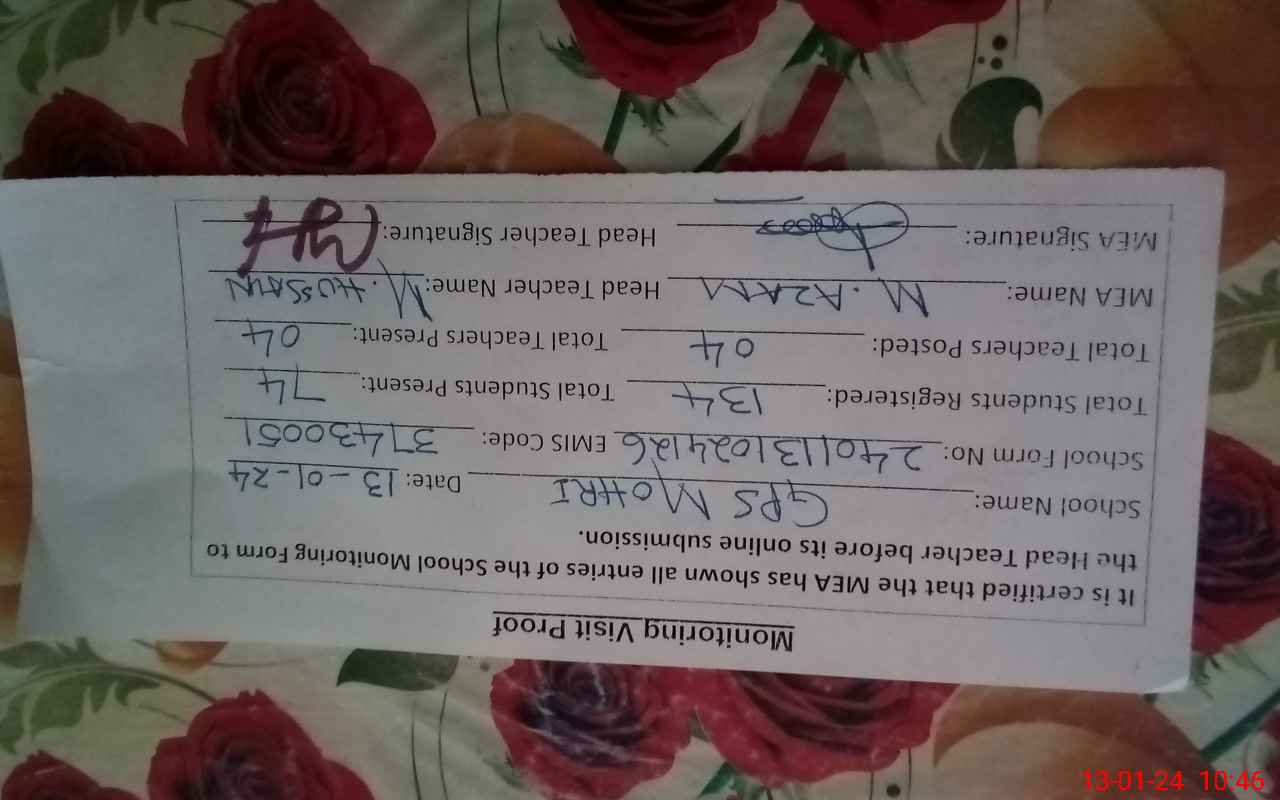 Monitoring Visit Proof
It is certified that the MEA has shown all entries of the School Monitoring Form to
the Head Teacher before its online submission.
School Name: GPS MOHRI Date: 13-01-24
School Form No: 2401131024126 EMIS Code: 37430051
Total Students Registered: 134 Total Students Present: 74
Total Teachers Posted: 04 Total Teachers Present: 04
MEA Name: M. AZAM Head Teacher Name: M. HUSSAIN
MEA Signature: Head Teacher Signature:
13-01-24 10:46